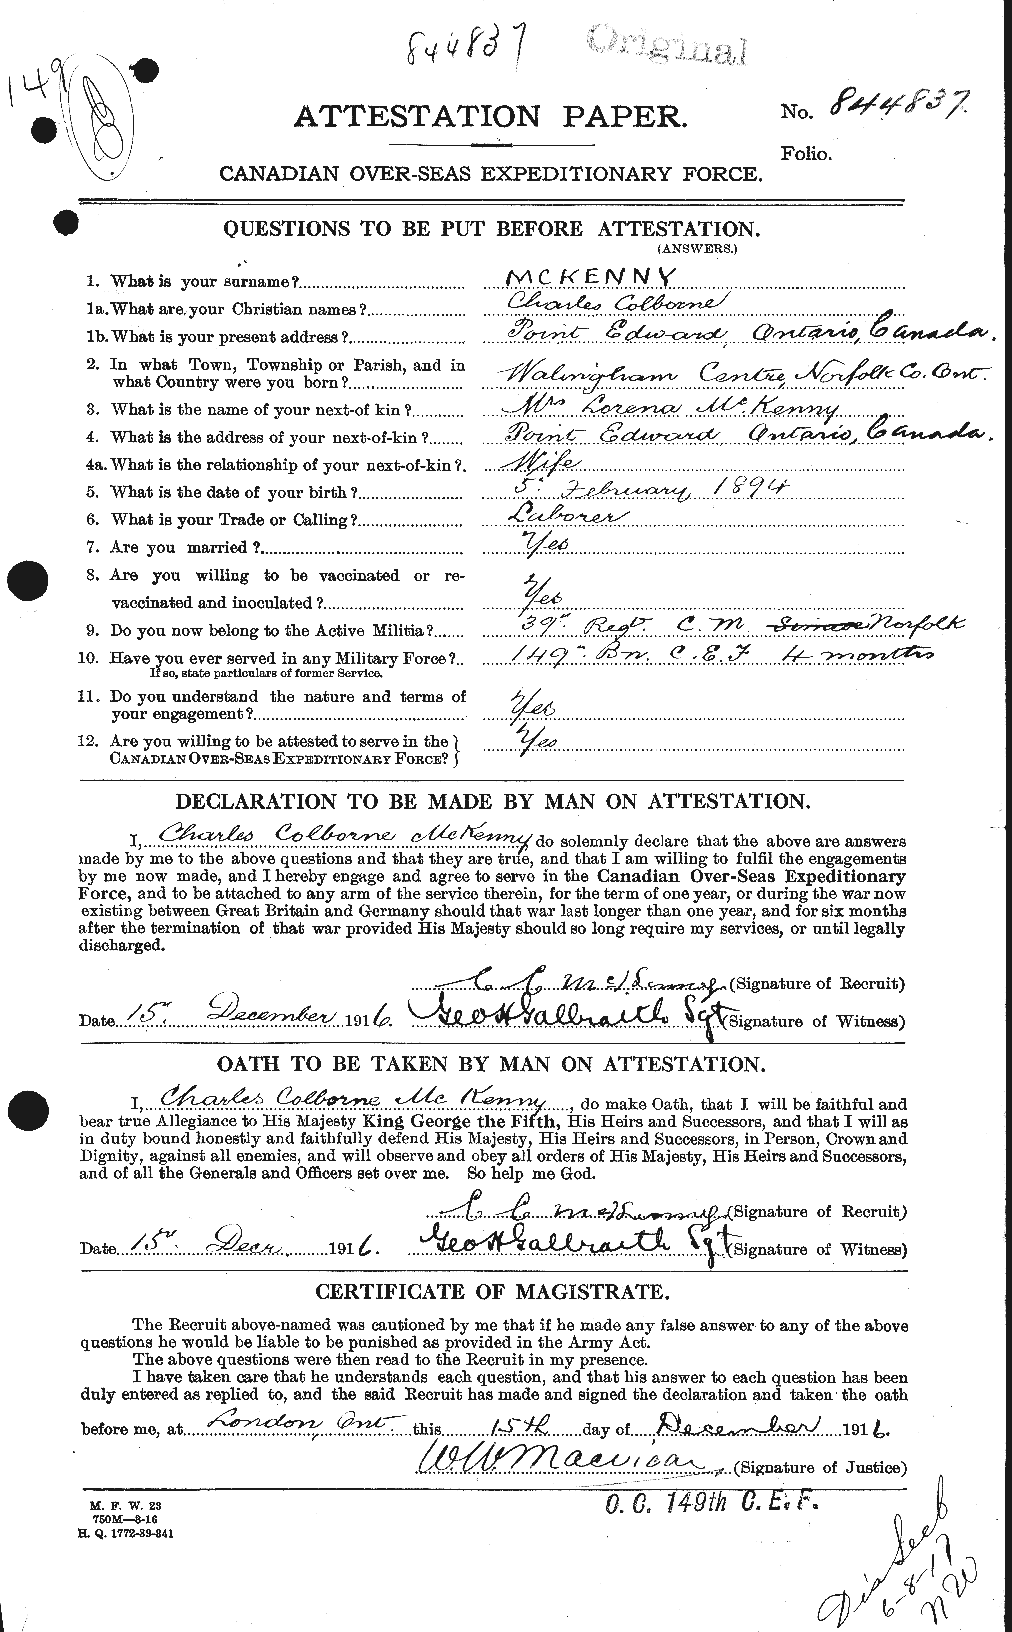 844837 Original
149
ATTESTATION PAPER. No. 844837.
Folio.
CANADIAN OVER-SEAS EXPEDITIONARY FORCE.
QUESTIONS TO BE PUT BEFORE ATTESTATION.
(ANSWERS.)
1. What is your surname? MCKENNY
1a. What are your Christian names? Charles Colborne
1b. What is your present address? Point Edward, Ontario, Canada.
2. In what Town, Township or Parish, and in
what Country were you born? Walsingham Centre, Norfolk Co. Ont.
3. What is the name of your next-of kin? Mrs Lorena McKenny
4. What is the address of your next-of-kin? Point Edward Ontario, Canada.
4a. What is the relationship of your next-of-kin? Wife
5. What is the date of your birth? 5th February 1894
6. What is your Trade or Calling? Laborer
7. Are you married? Yes
8. Are you willing to be vaccinated or re-
vaccinated and inoculated? Yes
9. Do you now belong to the Active Militia? 39th Regt. C. M. Norfolk
10. Have you ever served in any Military Force? 149th Bn. C.E.F 4 months
If so, state particulars of former Service.
11. Do you understand the nature and terms of
your engagement? Yes
12. Are you willing to be attested to serve in the
CANADIAN OVER-SEAS EXPEDITIONARY FORCE? } Yes
DECLARATION TO BE MADE BY MAN ON ATTESTATION.
I, Charles Colborne McKenny do solemnly declare that the above are answers
made by me to the above questions and that they are true, and that I am willing to fulfil the engagements
by me now made, and I hereby engage and agree to serve in the Canadian Over-Seas Expeditionary
Force, and to be attached to any arm of the service therein, for the term of one year, or during the war now
existing between Great Britain and Germany should that war last longer than one year, and for six months
after the termination of that war provided His Majesty should so long require my services, or until legally
discharged.
C. C. McKenny (Signature of Recruit)
Date 15th December 1916. Geo H Galbraith Sgt (Signature of Witness)
OATH TO BE TAKEN BY MAN ON ATTESTATION.
I, Charles Colborne McKenny, do make Oath, that I will be faithful and
bear true Allegiance to His Majesty King George the Fifth, His Heirs and Successors, and that I will as
in duty bound honestly and faithfully defend His Majesty, His Heirs and Successors, in Person, Crown and
Dignity, against all enemies, and will observe and obey all orders of His Majesty, His Heirs and Successors,
and of all the Generals and Officers set over me. So help me God.
C. C. McKenny (Signature of Recruit)
Date 15th Decr. 1916. Geo H Galbraith Sgt (Signature of Witness)
CERTIFICATE OF MAGISTRATE.
The Recruit above-named was cautioned by me that if he made any false answer to any of the above
questions he would be liable to be punished as provided in the Army Act.
The above questions were then read to the Recruit in my presence.
I have taken care that he understands each question, and that his answer to each question has been
duly entered as replied to, and the said Recruit has made and signed the declaration and taken the oath
before me, at London, Ont. this 15th day of December 1916.
W W Macvicar (Signature of Justice)
O. C. 149th C. E. F.
M. F. W. 23
750M—8-16
H. Q. 1772-39-841
6-8-17